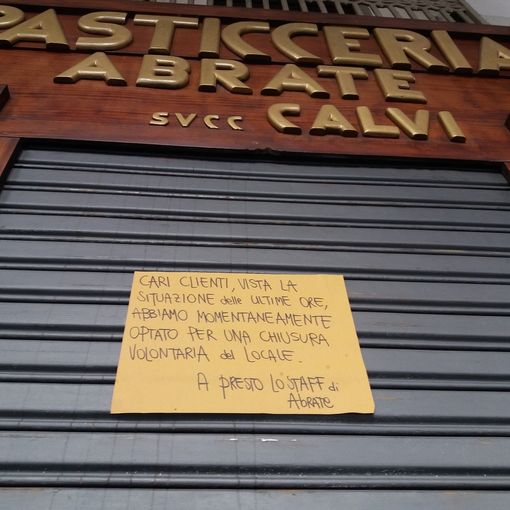 PASTICCERIA
ABRATE
SVCC CALVI
CARI CLIENTI, VISTA LA
SITUAZIONE delle ULTIME ORE,
ABBIAMO MOMENTANEAMENTE
OPTATO PER UNA CHIUSURA
VOLONTARIA del LOCALE.
A PRESTO LO STAFF di
ABRATE